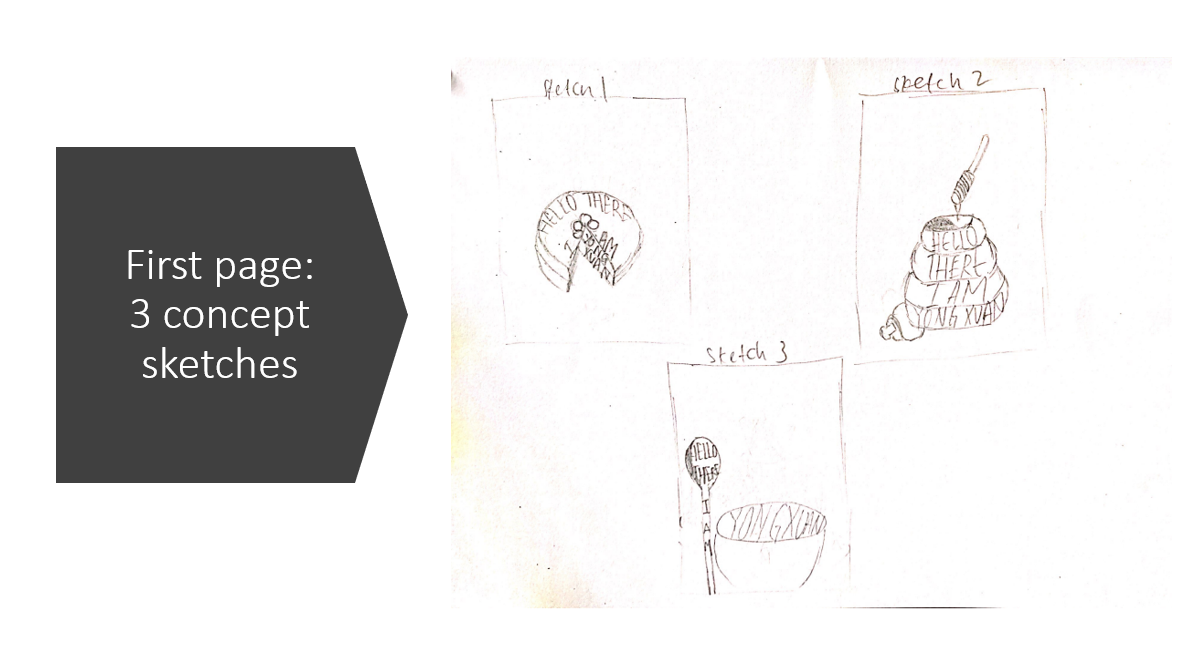 First page:
3 concept
sketches
sketch 1
HELLO THERE
I AM
YONG
XUAN
sketch 2
HELLO
THERE
I AM
YONG XUAN
sketch 3
HELLO
THERE
I
A
M
YONG XUAN